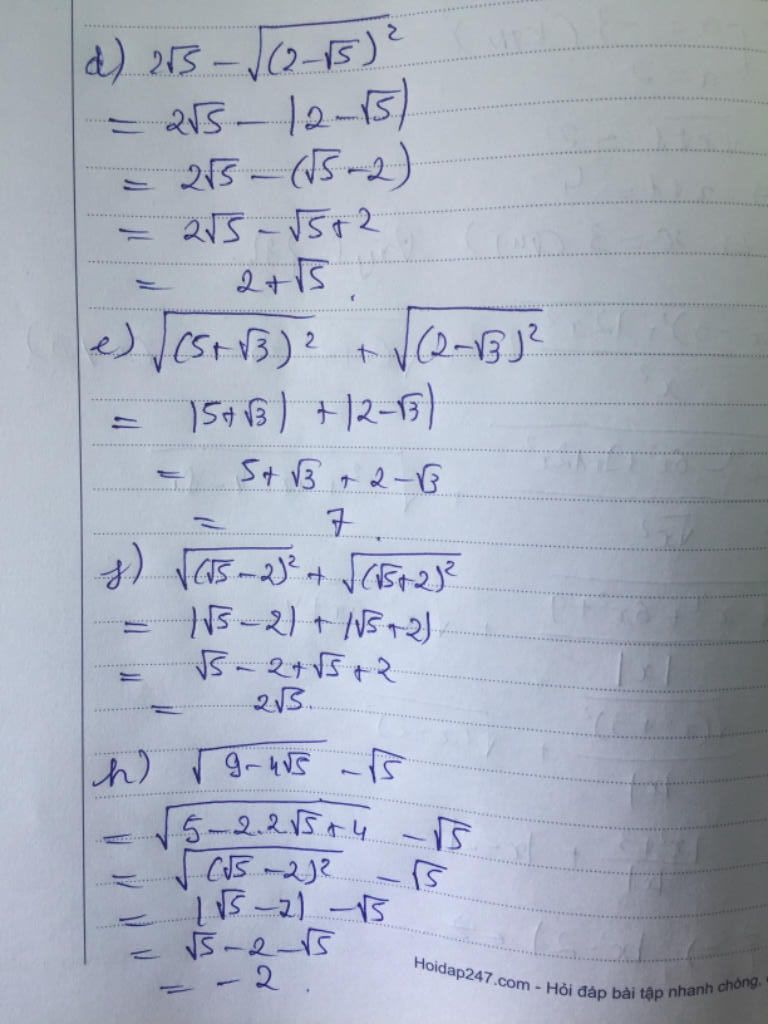 d) 2√5 - √(2-√5)²
= 2√5 - |2-√5|
= 2√5 - (√5-2)
= 2√5 - √5+2
= 2+√5.
e) √(5+√3)² + √(2-√3)²
= |5+√3| + |2-√3|
= 5+√3 + 2-√3
= 7.
f) √(√5-2)² + √(√5+2)²
= |√5-2| + |√5+2|
= √5-2+√5+2
= 2√5.
h) √9-4√5 - √5
= √5-2.2√5+4 - √5
= √(√5-2)² - √5
= |√5-2| - √5
= √5-2-√5
= -2.
Hoidap247.com - Hỏi đáp bài tập nhanh chóng,